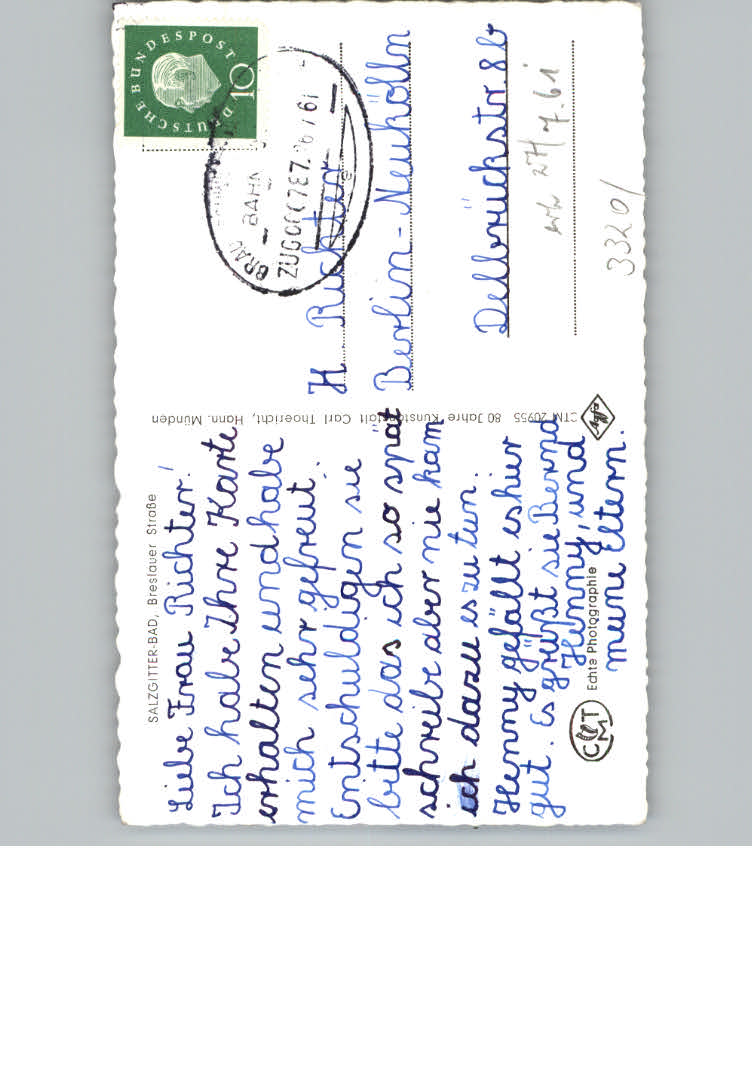 SALZGITTER-BAD, Breslauer Straße
Liebe Frau Richter!
Ich habe Ihre Karte
erhalten und habe
mich sehr gefreut.
Entschuldigen sie
bitte das ich so spät
schreibe aber nie kam
ich dazu es zu tun.
Henny gefällt es hier
gut. Es grüßt sie Bernd
Henny, und
meine Eltern.
CMT
Echte Photographie
CTM 20955 80 Jahre Kunstanstalt Carl Thoericht, Hann. Münden
Agfa
DEUTSCHE BUNDESPOST
10
BAHN
ZUG
H. Richter
Berlin-Neukölln
Delbrückstr. 8b
3320/